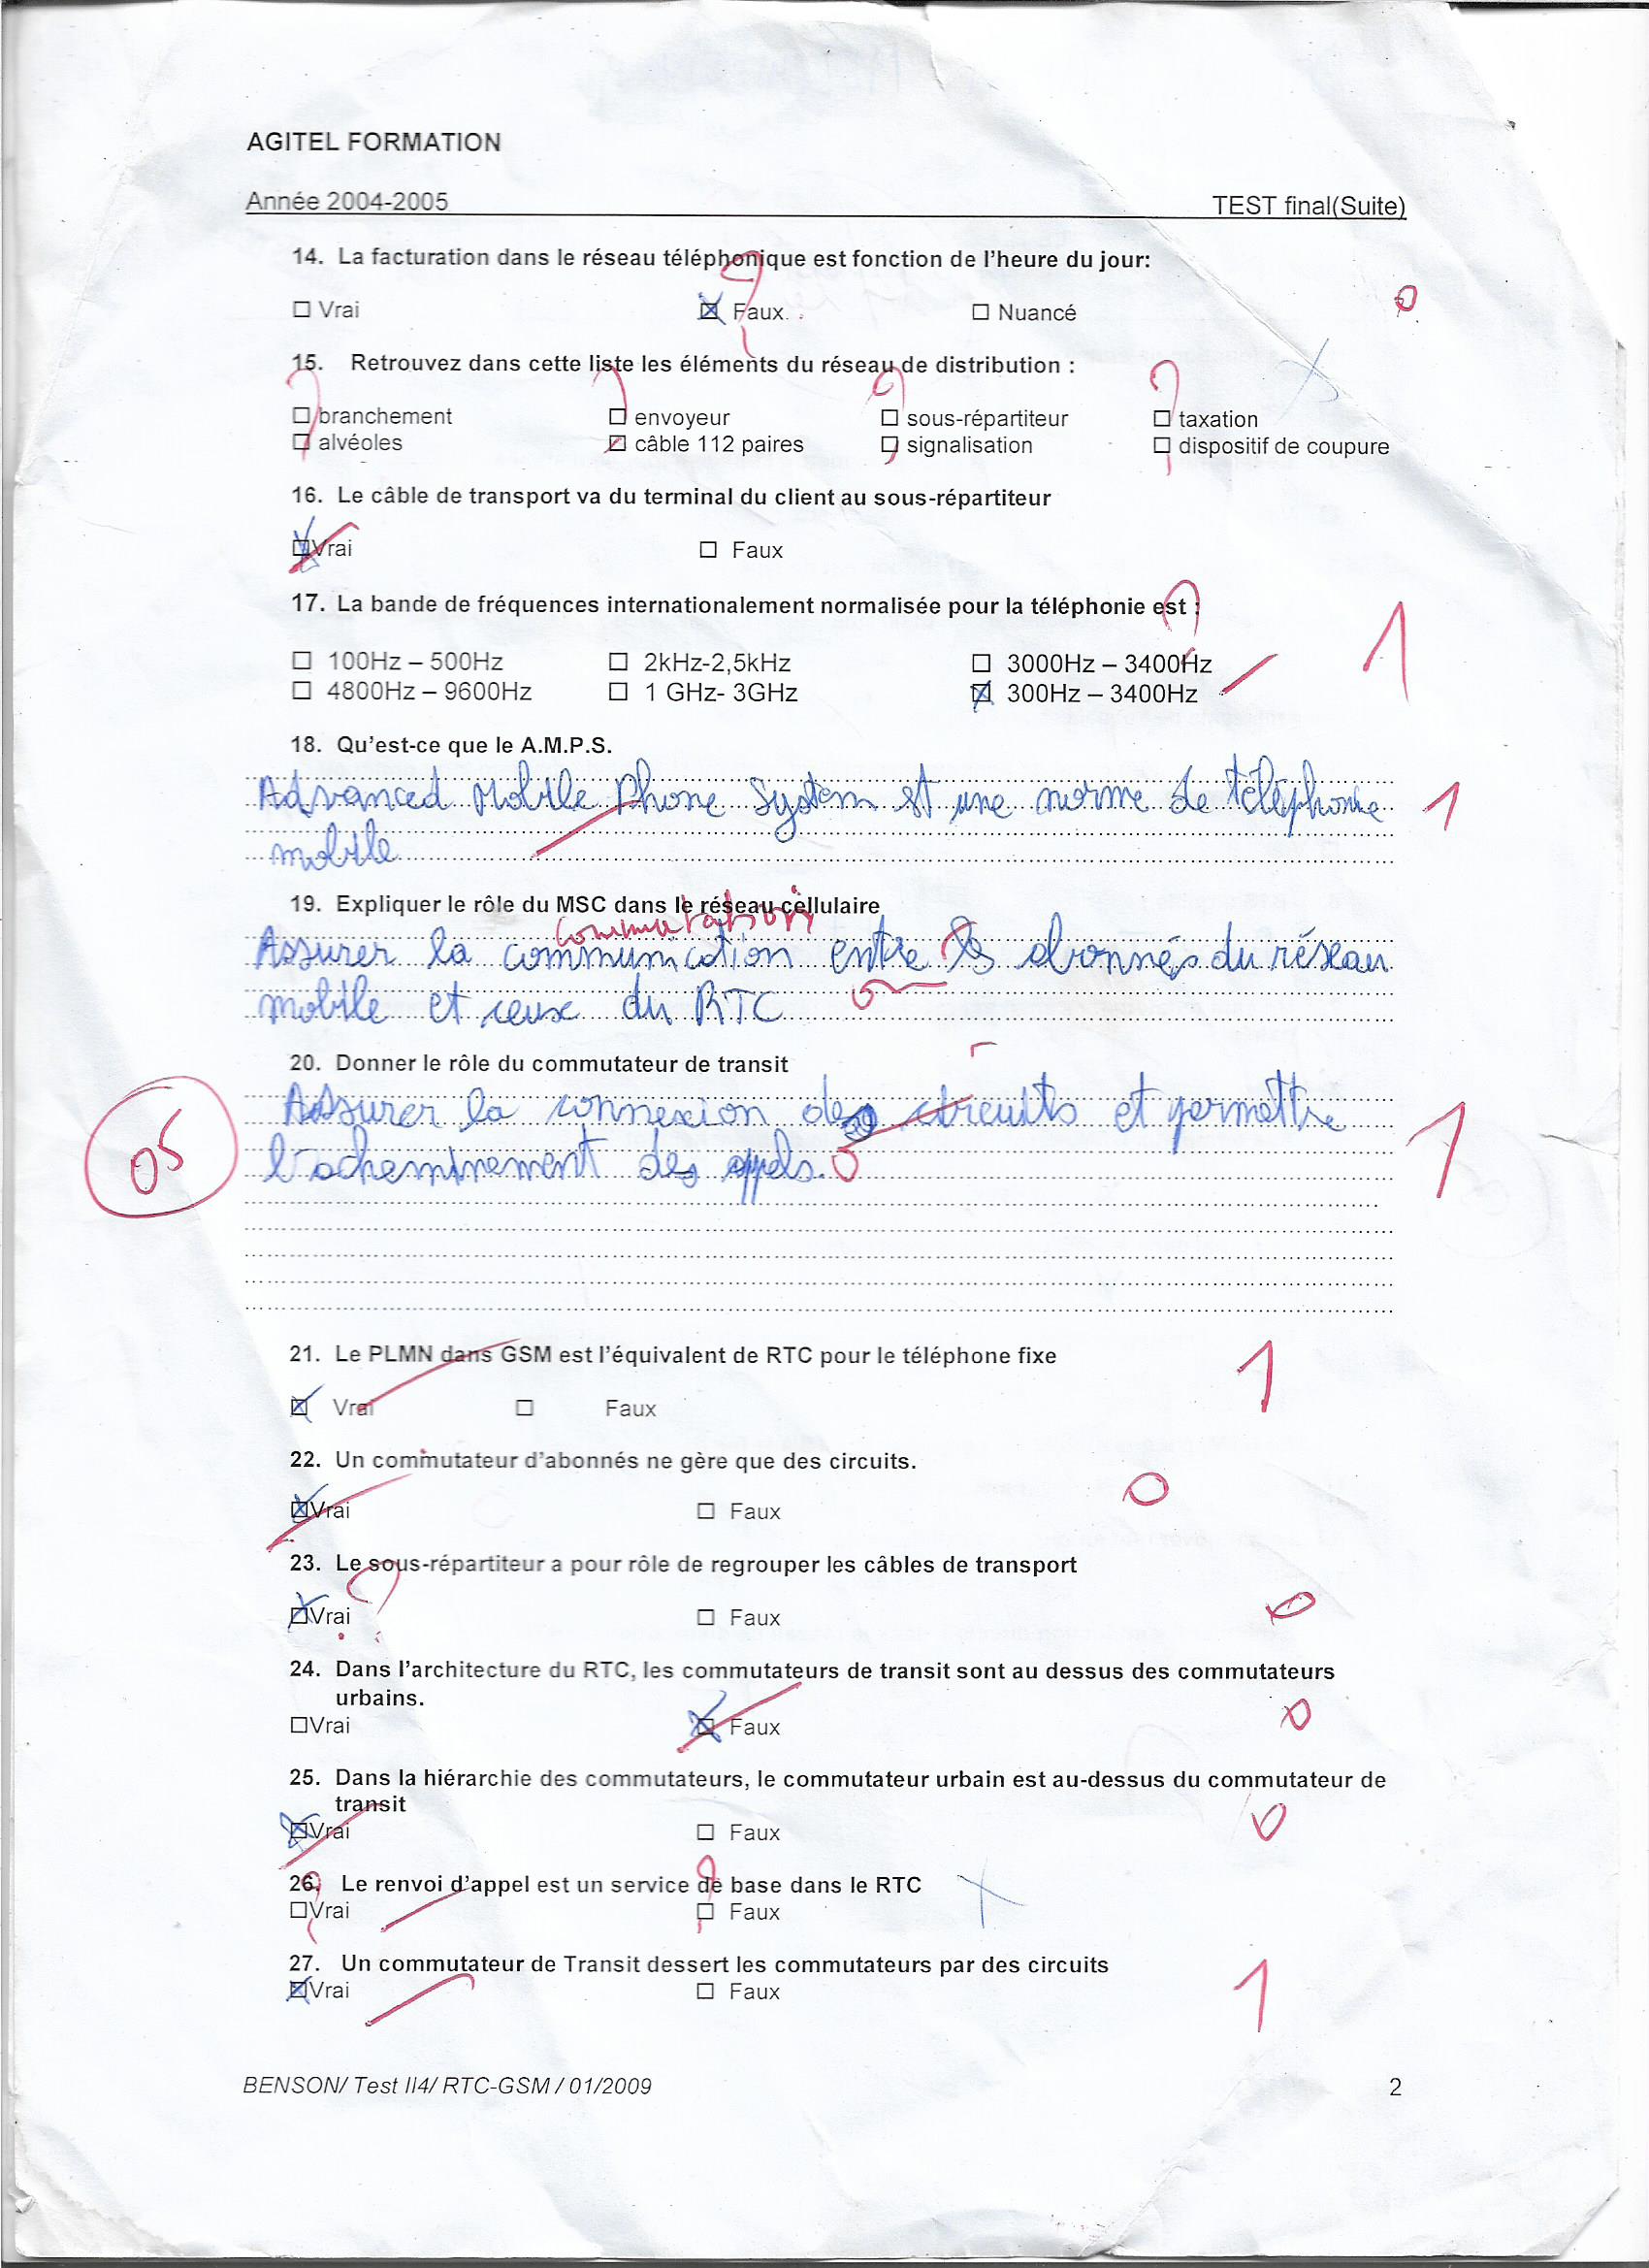 AGITEL FORMATION
Année 2004-2005 TEST final(Suite)
14. La facturation dans le réseau téléphonique est fonction de l'heure du jour:
☐ Vrai ☒ Faux. ☐ Nuancé
0
15. Retrouvez dans cette liste les éléments du réseau de distribution :
☐ branchement ☐ envoyeur ☐ sous-répartiteur ☐ taxation
☐ alvéoles ☑ câble 112 paires ☐ signalisation ☐ dispositif de coupure
16. Le câble de transport va du terminal du client au sous-répartiteur
☒Vrai ☐ Faux
17. La bande de fréquences internationalement normalisée pour la téléphonie est :
☐ 100Hz – 500Hz ☐ 2kHz-2,5kHz ☐ 3000Hz – 3400Hz
☐ 4800Hz – 9600Hz ☐ 1 GHz- 3GHz ☒ 300Hz – 3400Hz
1
18. Qu'est-ce que le A.M.P.S.
Advanced Mobile Phone System est une norme de téléphonie 1
mobile
19. Expliquer le rôle du MSC dans le réseau cellulaire
commutation
Assurer la communication entre les abonnés du réseau
mobile et ceux du RTC
20. Donner le rôle du commutateur de transit
Assurer la connexion des circuits et permettre
05 1
l'acheminement des appels.
21. Le PLMN dans GSM est l'équivalent de RTC pour le téléphone fixe
☒ Vrai ☐ Faux
1
22. Un commutateur d'abonnés ne gère que des circuits.
☒Vrai ☐ Faux
0
23. Le sous-répartiteur a pour rôle de regrouper les câbles de transport
☒Vrai ☐ Faux
0
24. Dans l'architecture du RTC, les commutateurs de transit sont au dessus des commutateurs
urbains.
☐Vrai ☒ Faux
0
25. Dans la hiérarchie des commutateurs, le commutateur urbain est au-dessus du commutateur de
transit
☒Vrai ☐ Faux
0
26. Le renvoi d'appel est un service de base dans le RTC
☐Vrai ☐ Faux
27. Un commutateur de Transit dessert les commutateurs par des circuits
☒Vrai ☐ Faux
1
BENSON/ Test II4/ RTC-GSM / 01/2009 2